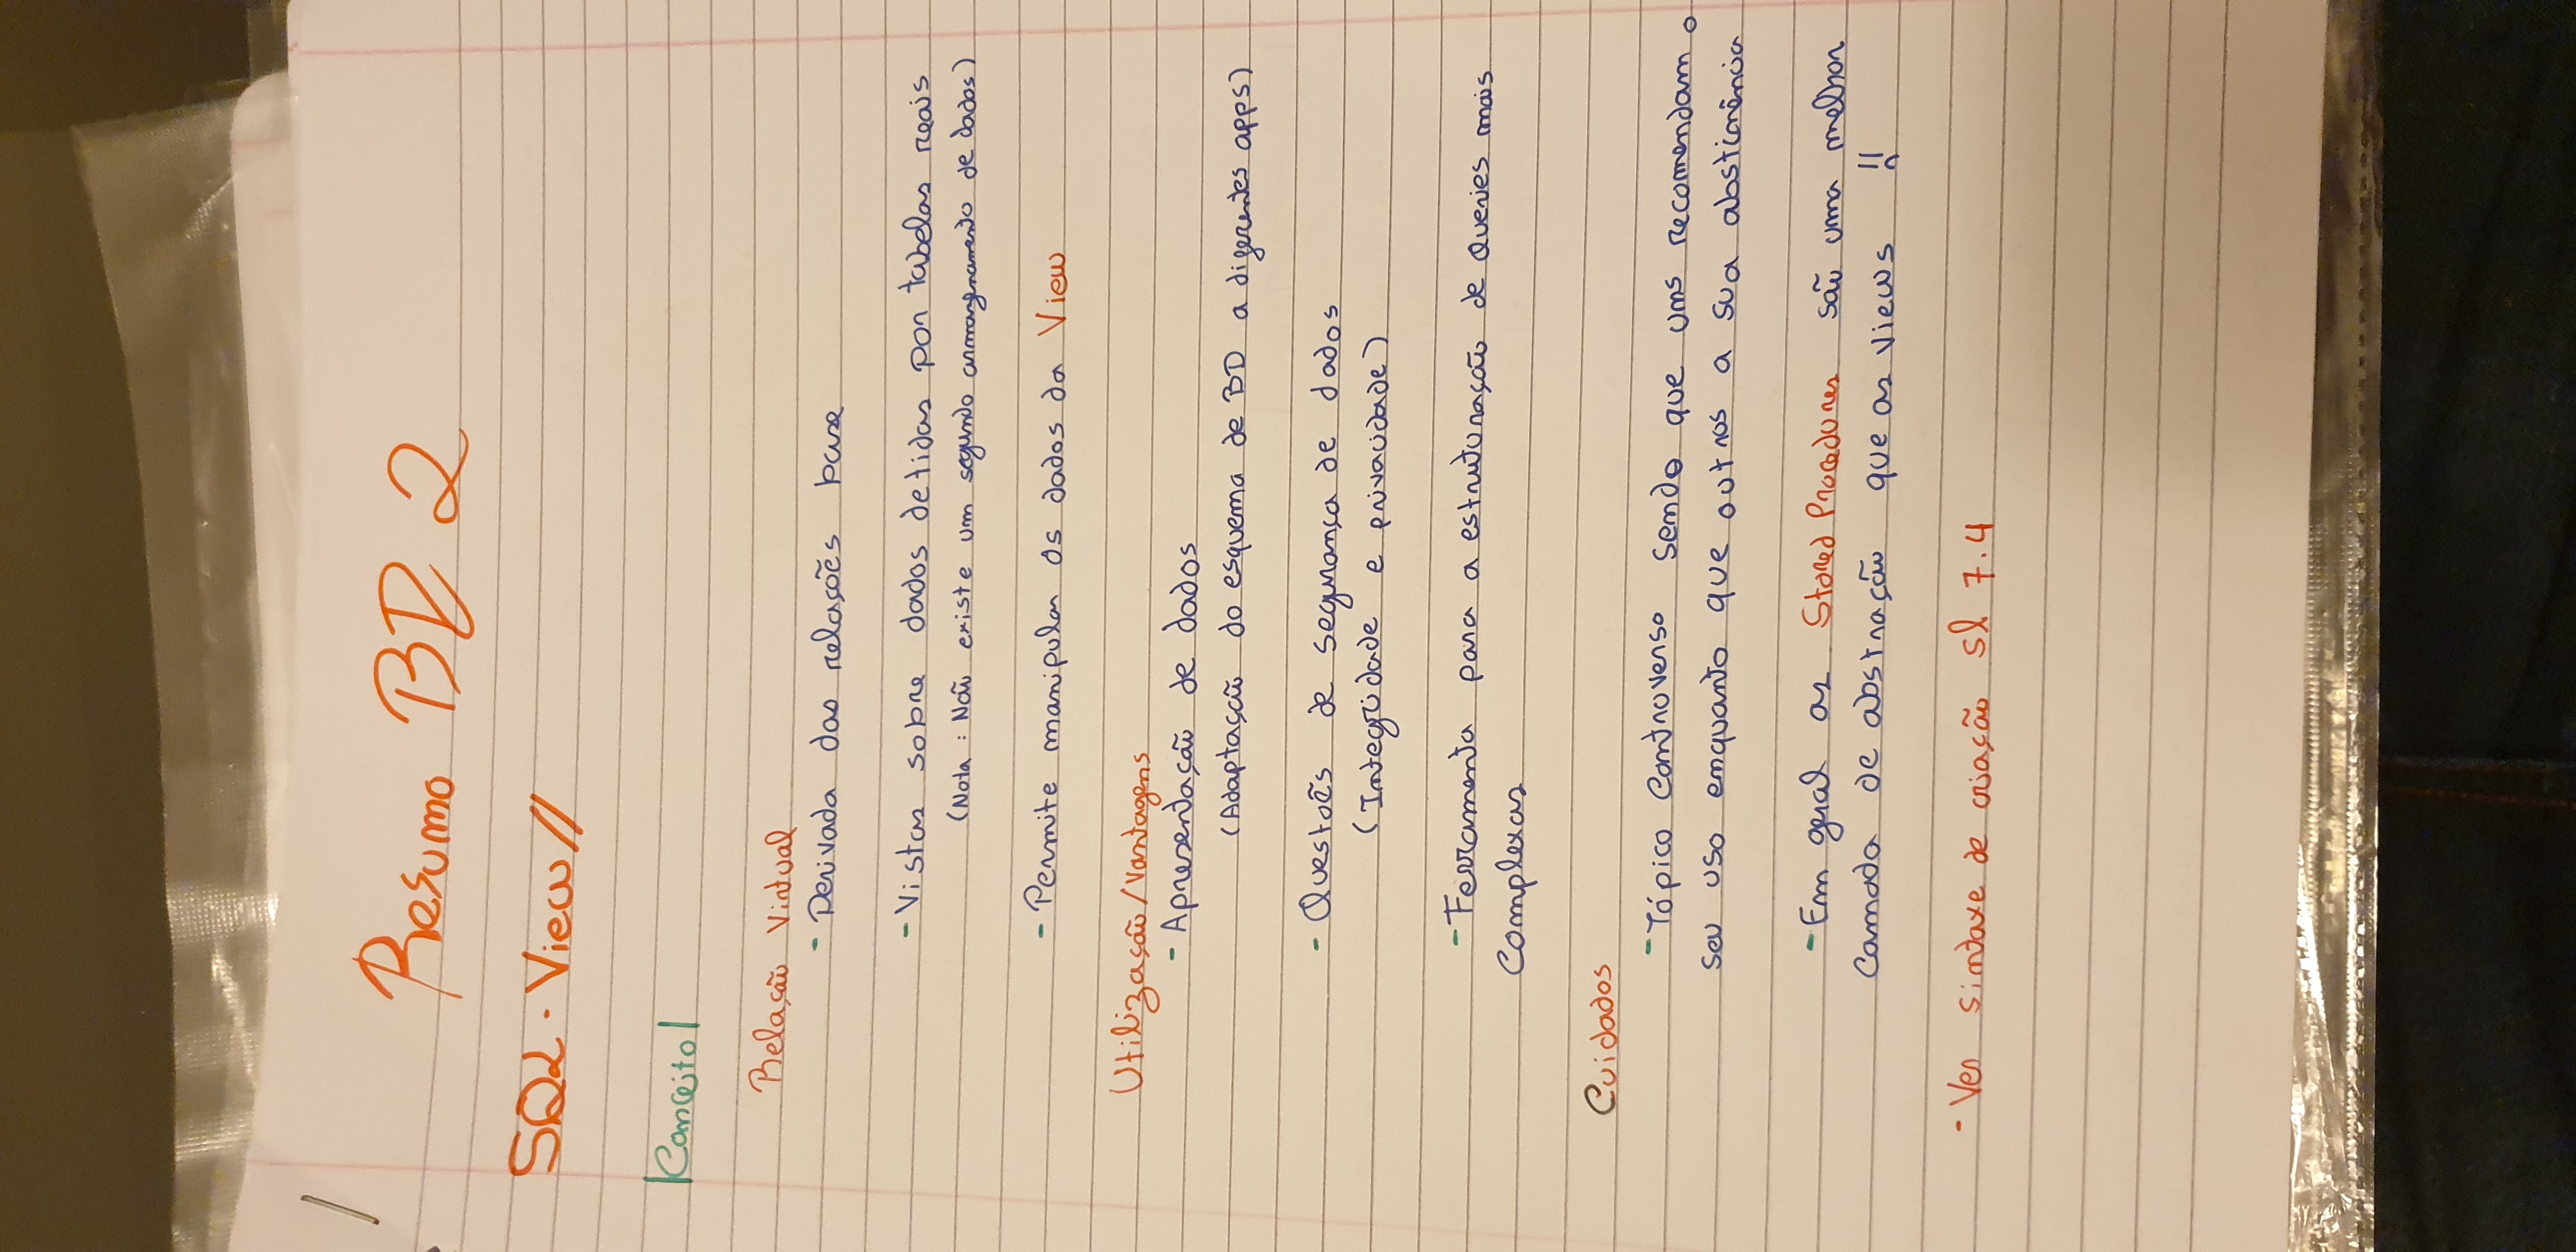 Resumo BD 2
SQL - View //
|Conceito|
Relação Virtual
- Derivada das relações base
- Vistas sobre dados detidas por tabelas reais
(Nota : Não existe um segundo armargenamento de dados)
- Permite manipular os dados da View
Utilização/Vantagens
- Apresentação de dados
(Adaptação do esquema de BD a diferentes apps)
- Questões de segurança de dados
(Integridade e privacidade)
- Ferramenta para a estruturação de Queries mais
complexas
Cuidados
- Tópico controverso sendo que uns recomendam o
seu uso enquanto que outros a sua abstinência
- Em geral as Stored Procedures são uma melhor
camada de abstração que as views !!
- Ver sintaxe de criação sl 7.4